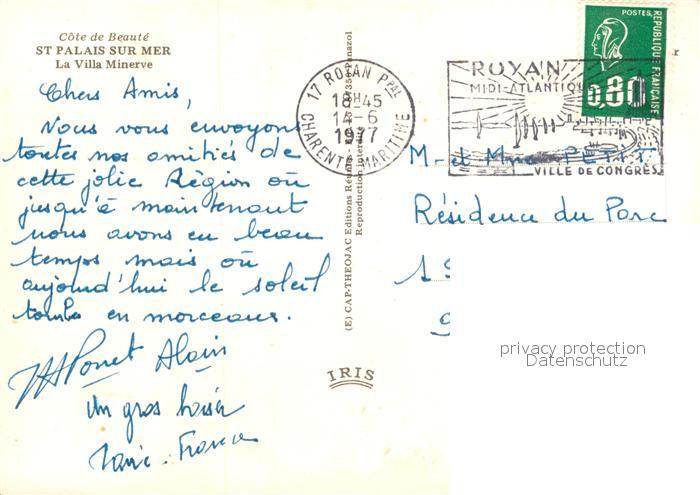 Côte de Beauté
ST PALAIS SUR MER
La Villa Minerve
Chers Amis,
Nous vous envoyons
toutes nos amitiés de
cette jolie Région où
jusqu'à maintenant
nous avons eu beau
temps mais où
aujourd'hui le soleil
tombe en morceaux.
Ponet Alain
Un gros baiser
Marie-France
(E) CAP-THEOJAC Editions
Reproduction interdite
Panazol
IRIS
17 ROYAN PPAL
18H45
14-6
1977
CHARENTE MARITIME
ROYAN
MIDI-ATLANTIQUE
VILLE DE CONGRÈS
POSTES
REPUBLIQUE FRANÇAISE
0,80
M. et Mme PETIT
Résidence du Parc
privacy protection
Datenschutz